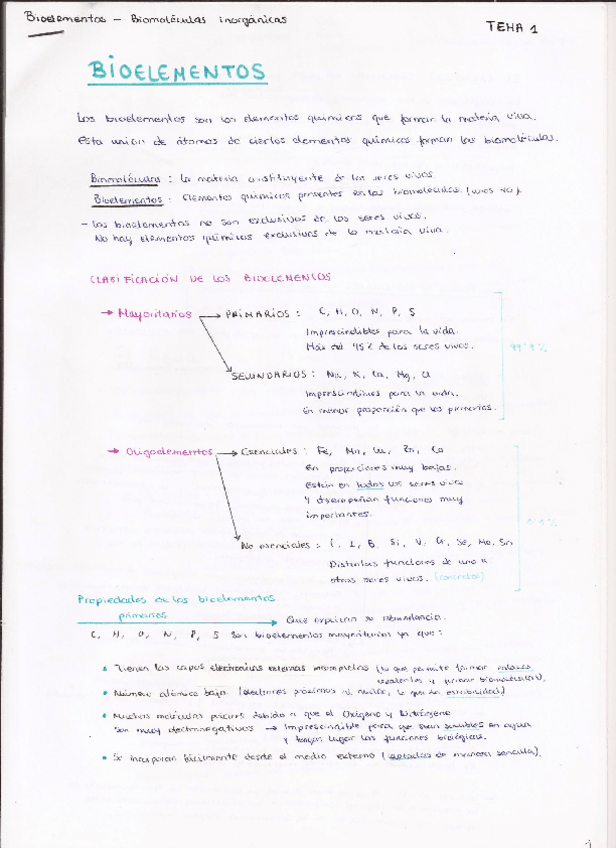 Bioelementos - Biomoléculas inorgánicas
TEMA 1
BIOELEMENTOS
Los bioelementos son los elementos químicos que forman la materia viva.
Esta unión de átomos de ciertos elementos químicos forman las biomoléculas.
Biomoléculas : la materia constituyente de los seres vivos.
Bioelementos : Elementos químicos presentes en las biomoléculas.
- Los bioelementos no son exclusivos de los seres vivos.
No hay elementos químicos exclusivos de la materia viva.
CLASIFICACIÓN DE LOS BIOELEMENTOS
→ Mayoritarios → PRIMARIOS : C, H, O, N, P, S
Imprescindibles para la vida.
Más del 95% de los seres vivos.
99'9%
SECUNDARIOS : Na, K, Ca, Mg, Cl
Imprescindibles para la vida.
En menor proporción que los primarios.
→ Oligoelementos → Esenciales : Fe, Mn, Cu, Zn, Co
En proporciones muy bajas.
Están en todos los seres vivos
Y desempeñan funciones muy
importantes.
No esenciales : I, B, Si, V, Cr, Se, Mo, Sn
Distintas funciones de uno u
otros seres vivos. (concretos)
Propiedades de los bioelementos
primarios → Que explican su abundancia.
C, H, O, N, P, S son bioelementos mayoritarios ya que :
• Tienen las capas electrónicas externas incompletas (lo que permite formar enlaces
covalentes y formar biomoléculas).
• Número atómico bajo (electrones próximos al núcleo, lo que da estabilidad)
• Muchas moléculas polares debido a que el Oxígeno y Nitrógeno
son muy electronegativos → Imprescindible para que sean solubles en agua
y tengan lugar las funciones biológicas.
• Se incorporan fácilmente desde el medio externo ( de manera sencilla).
1